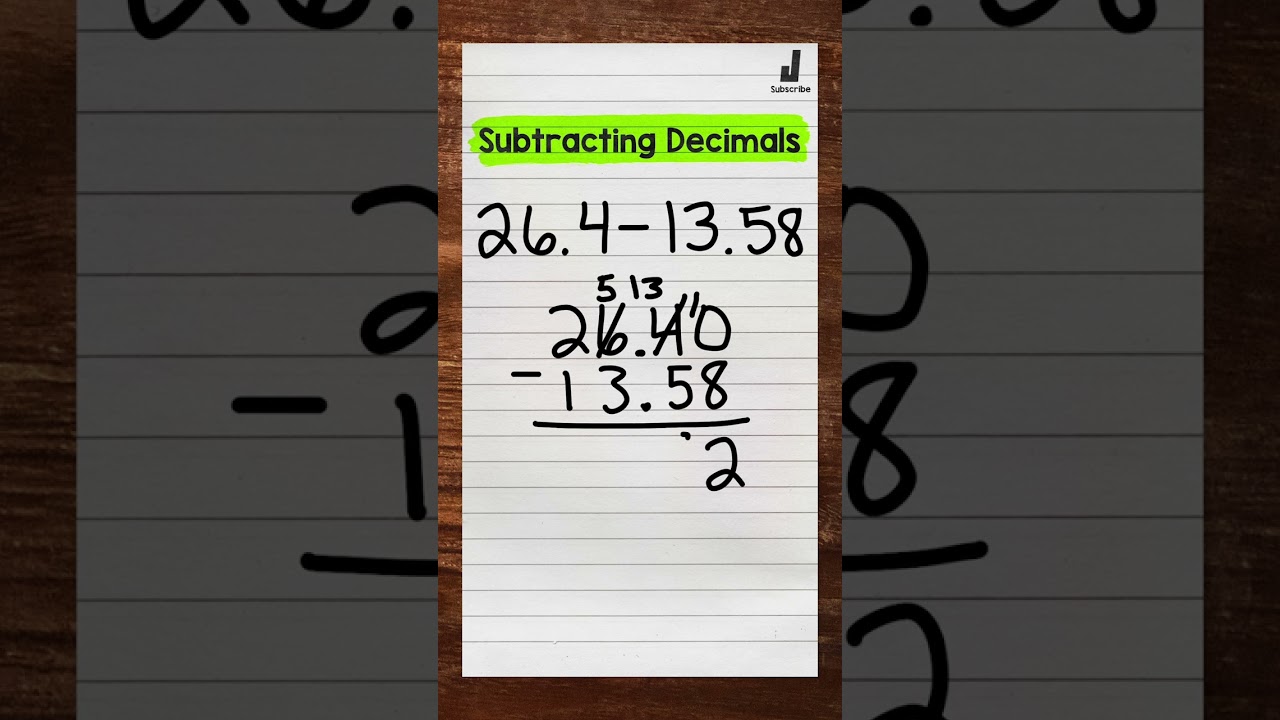 Subscribe
Subtracting Decimals
26.4-13.58
5 13
26.4 10
- 13.58
2